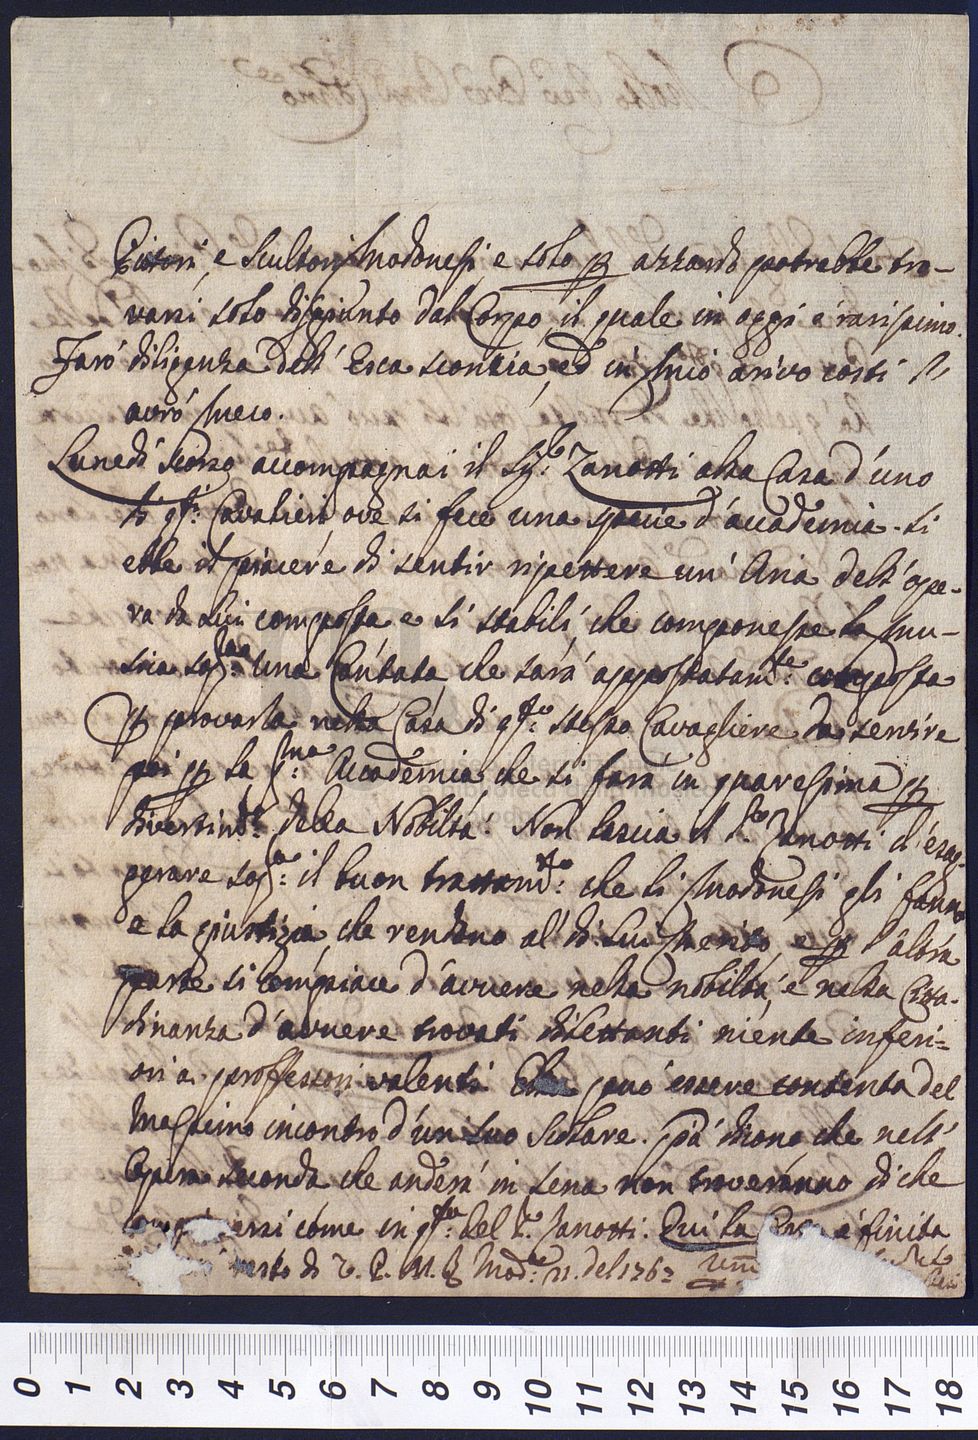 Pittori, e Scultori Modonesi e solo p azzardo potrebbe tro-
varsi solo disgiunto dal Corpo il quale in oggi è rarissimo.
Farò diligenza dell' Esca sconzia, ed in mio arivo costì
avrò meco.
Lunedì scorso accompagnai il Sig.r Zanotti alla Casa d'uno
di qti. Cavalieri ove si fece una specie d'accademia. si
ebbe il piacere di sentir ripettere un' Aria dell' ope-
ra da lui composta e si stabilì, che componesse la mu-
sica una Cantata, che sarà appostatam.te composta
p provarla nella Casa di q.sto stesso Cavagliere da servire
poi p la p.ma Accademia, che si farà in quaresima p
divertim.to della Nobiltà. Non lascia il S. Zanotti d'esag-
gerare il buon trattam.to che li Modonesi gli fanno
e la giustizia, che rendono al di Lui Merito, e p l'altra
parte si compiace d'avere nella nobiltà, e nella Citta-
dinanza d'avvere trovati dilettanti niente inferi-
ori a proffessori valenti. Ella può essere contenta del
Massimo incontro d'un suo Scolare. Già dicono che nell'
Opera seconda che anderà in scena non troveranno di che
come in q.sta del S. Zanotti. Qui la è finita
resto di V. P. M. R Mod.a 21. del 1762